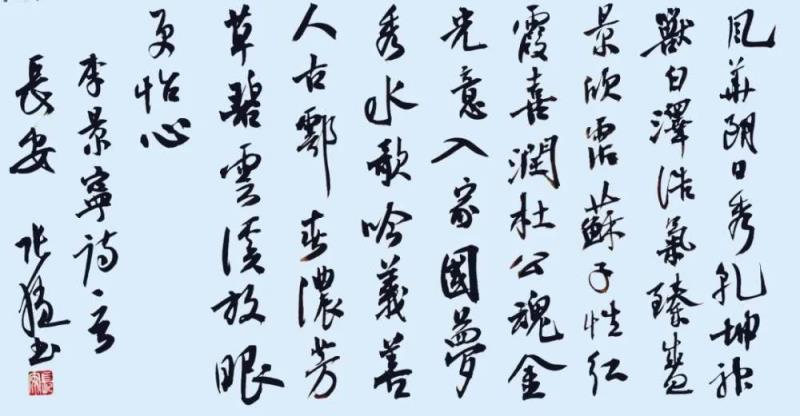 風華朗日秀乾坤神
獸白澤浩氣臻盛
景欣霑蘇子性紅
霞喜潤杜公魂金
光意入家國夢
秀水歌吟義善
人古鄠春濃芳
草碧雲溪放眼
更怡心
李景寧詩一首
長安 張书